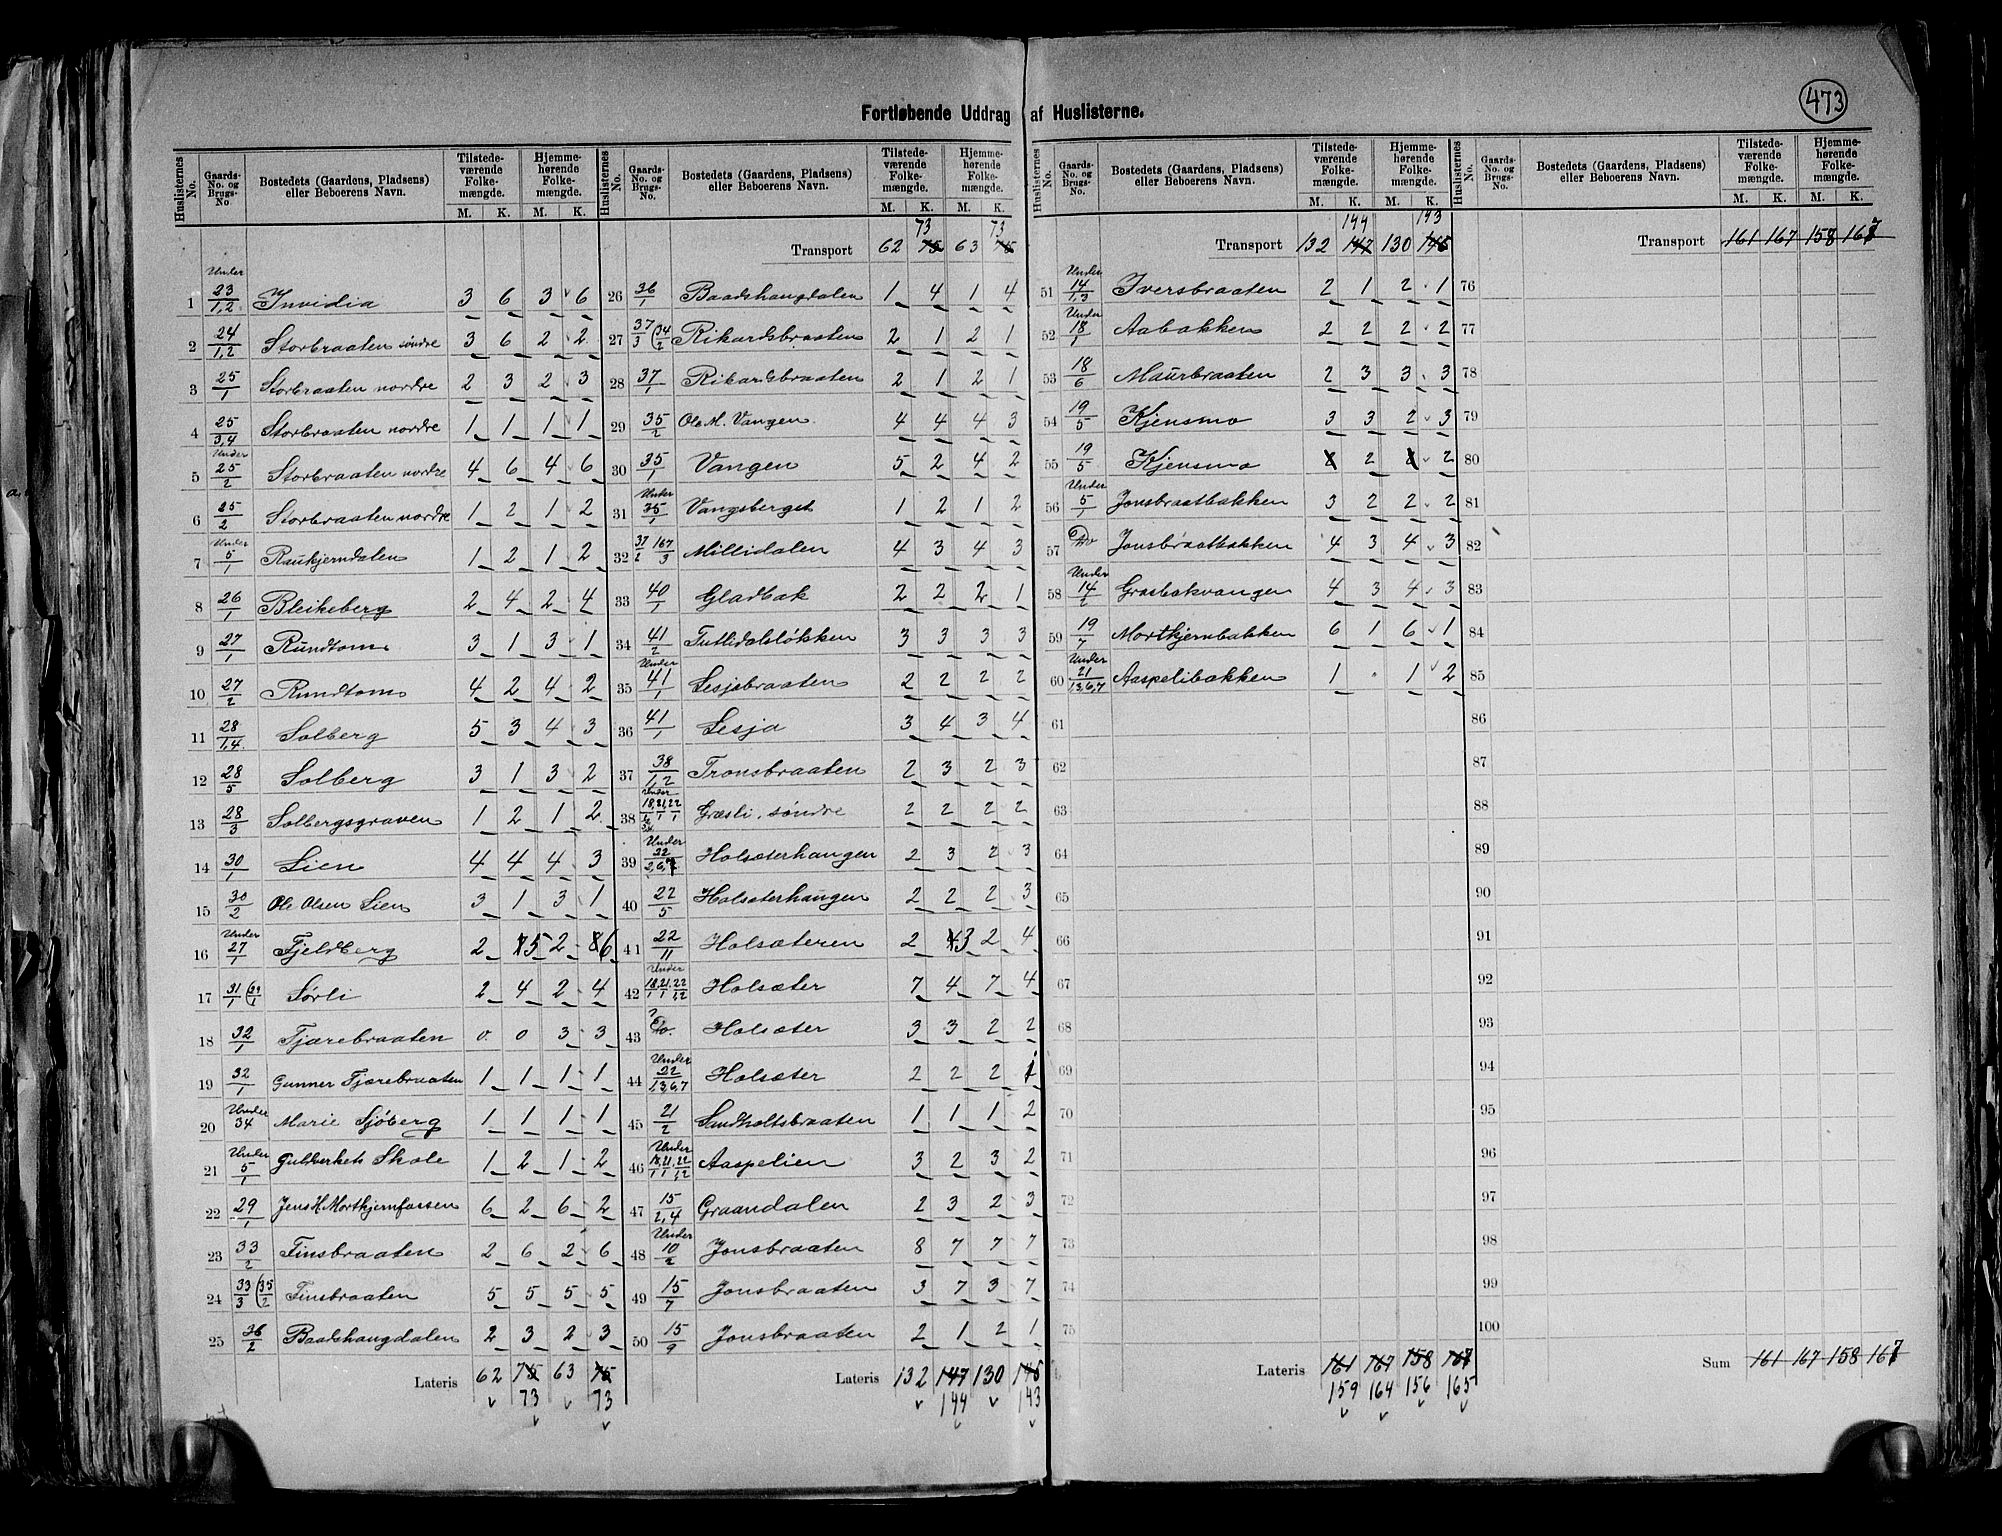 473
Fortløbende Uddrag af Huslisterne.
Huslisternes No. Gaards-No. og Brugs-No Bostedets (Gaardens, Pladsens) eller Beboerens Navn. Tilstedeværende Folkemængde. M. K. Hjemmehørende Folkemængde. M. K.
1 Under 23/1,2 Invidia 3 6 3 6
2 24/1,2 Storbraaten søndre 3 6 2 2
3 25/1 Storbraaten nordre 2 3 2 3
4 25/3,4 Storbraaten nordre 1 1 1 1
5 Under 25/2 Storbraaten nordre 4 6 4 6
6 25/2 Storbraaten nordre 1 2 1 2
7 Under 5/1 Raukjerndalen 1 2 1 2
8 26/1 Bleikeberg 2 4 2 4
9 27/1 Rundtom 3 1 3 1
10 27/2 Rundtom 4 2 4 2
11 28/1,4 Solberg 5 3 4 3
12 28/5 Solberg 3 1 3 2
13 28/3 Solbergsgraven 1 2 1 2
14 30/1 Lien 4 4 4 3
15 30/2 Ole Olsen Lien 3 1 3 1
16 Under 27/1 Fjeldberg 2 5 2 6
17 31/1 (39/1 Sørli 2 4 2 4
18 32/1 Tjærebraaten 0 0 3 3
19 32/1 Gunner Tjærebraaten 1 1 1 1
20 Under 34 Marie Sjøberg 1 1 1 1
21 Under 5/1 Guldverkets Skole 1 2 1 2
22 29/1 Jens H. Mortkjernfossen 6 2 6 2
23 33/2 Finsbraaten 2 6 2 6
24 33/3 (35/2 Finsbraaten 5 5 5 5
25 36/2 Baadshaugdalen 2 3 2 3
Lateris 62 75 63 75
73 73
Huslisternes No. Gaards-No. og Brugs-No. Bostedets (Gaardens, Pladsens) eller Beboerens Navn. Tilstedeværende Folkemængde. M. K. Hjemmehørende Folkemængde. M. K.
73 73
Transport 62 75 63 75
26 36/1 Baadshaugdalen 1 4 1 4
27 37/3 (34/2 Rikardsbraaten 2 1 2 1
28 37/1 Rikardsbraaten 2 1 2 1
29 35/2 Ole M. Vangen 4 4 4 3
30 35/1 Vangen 5 2 4 2
31 Under 35/1 Vangsberget 1 2 1 2
32 37/2 167/3 Millidalen 4 3 4 3
33 40/1 Gladbak 2 2 2 1
34 41/2 Tutlidalsløkken 3 3 3 3
35 Under 41/1 Lesjabraaten 2 2 2 2
36 41/1 Lesja 3 4 3 4
37 38/1,2 Tronsbraaten 2 3 2 3
38 Under 18,21,22 Græsli, søndre 2 2 2 2
39 Under 22/2,6,7 Holsæterhaugen 2 3 2 3
40 22/5 Holsæterhaugen 2 2 2 3
41 22/11 Holsæteren 2 3 2 4
42 Under 18,21,22/1 1 1,2 Holsæter 7 4 7 4
43 Do. Holsæter 3 3 2 2
44 Under 22/1,3,6,7 Holsæter 2 2 2 1
45 21/2 Sundholtsbraaten 1 1 1 2
46 Under 18,21,22/1 1 1,2 Aaspelien 3 2 3 2
47 15/2,4 Graandalen 2 3 2 3
48 Under 10/2 Jonsbraaten 8 7 7 7
49 15/7 Jonsbraaten 3 7 3 7
50 15/9 Jonsbraaten 2 1 2 1
Lateris 132 147 130 146
144 143
Huslisternes No. Gaards-No. og Brugs-No. Bostedets (Gaardens, Pladsens) eller Beboerens Navn. Tilstedeværende Folkemængde. M. K. Hjemmehørende Folkemængde. M. K.
144 143
Transport 132 147 130 146
51 Under 14/1,3 Iversbraaten 2 1 2 1
52 Under 18/1 Aabakken 2 2 2 2
53 18/6 Maurbraaten 2 3 3 3
54 19/5 Kjensmo 3 3 2 3
55 19/5 Kjensmo 2 2
56 Under 5/1 Jonsbraatbakken 3 2 2 2
57 Do Jonsbraatbakken 4 3 4 3
58 Under 14/2 Græsbakvangen 4 3 4 3
59 19/7 Mortkjernbakken 6 1 6 1
60 Under 21/1,3,6,7 Aaspelibakken 1 1 2
61
62
63
64
65
66
67
68
69
70
71
72
73
74
75
Lateris 161 167 158 167
159 164 156 165
Huslisternes No. Gaards-No. og Brugs-No. Bostedets (Gaardens, Pladsens) eller Beboerens Navn. Tilstedeværende Folkemængde. M. K. Hjemmehørende Folkemængde. M. K.
Transport 161 167 158 167
76
77
78
79
80
81
82
83
84
85
86
87
88
89
90
91
92
93
94
95
96
97
98
99
100
Sum 161 167 158 167